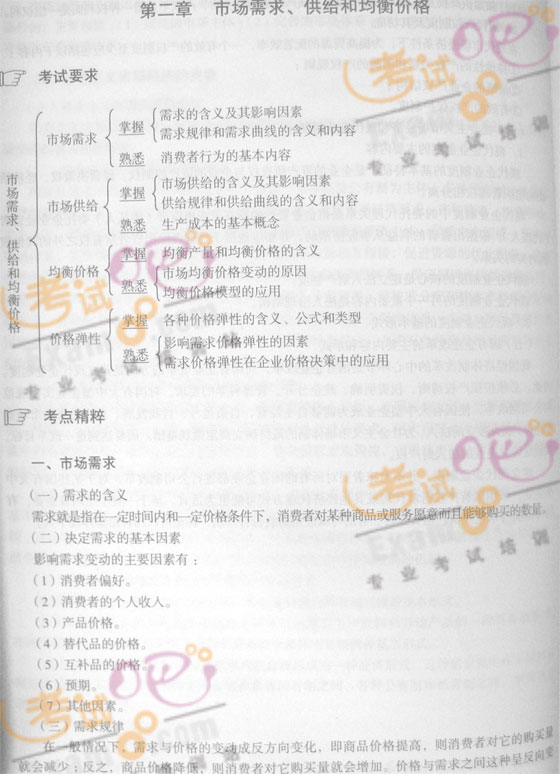 第二章 市场需求、供给和均衡价格
考试要求
市场需求、供给和均衡价格
市场需求
掌握
需求的含义及其影响因素
需求规律和需求曲线的含义和内容
熟悉 消费者行为的基本内容
市场供给
掌握
市场供给的含义及其影响因素
供给规律和供给曲线的含义和内容
熟悉 生产成本的基本概念
均衡价格
掌握 均衡产量和均衡价格的含义
熟悉
市场均衡价格变动的原因
均衡价格模型的应用
价格弹性
掌握 各种价格弹性的含义、公式和类型
熟悉
影响需求价格弹性的因素
需求价格弹性在企业价格决策中的应用
考点精粹
一、市场需求
(一)需求的含义
需求就是指在一定时间内和一定价格条件下，消费者对某种商品或服务愿意而且能够购买的数量。
(二)决定需求的基本因素
影响需求变动的主要因素有：
(1)消费者偏好。
(2)消费者的个人收入。
(3)产品价格。
(4)替代品的价格。
(5)互补品的价格。
(6)预期。
(7)其他因素。
(三)需求规律
在一般情况下，需求与价格的变动成反方向变化，即商品价格提高，则消费者对它的购买量
就会减少；反之，商品价格降低，则消费者对它购买量就会增加。价格与需求之间这种呈反向变
考试吧
专业考试培训
考试吧
专业考试培训
考试吧
专业考试培训
考试吧